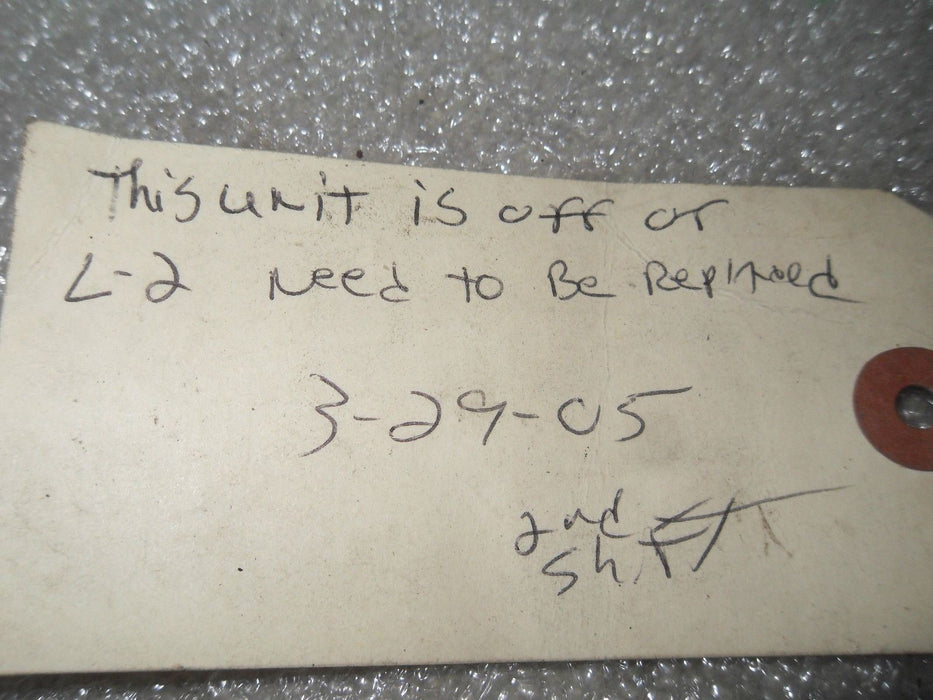 This unit is off or
L-2 Need to Be
3-29-05
2nd
Shift